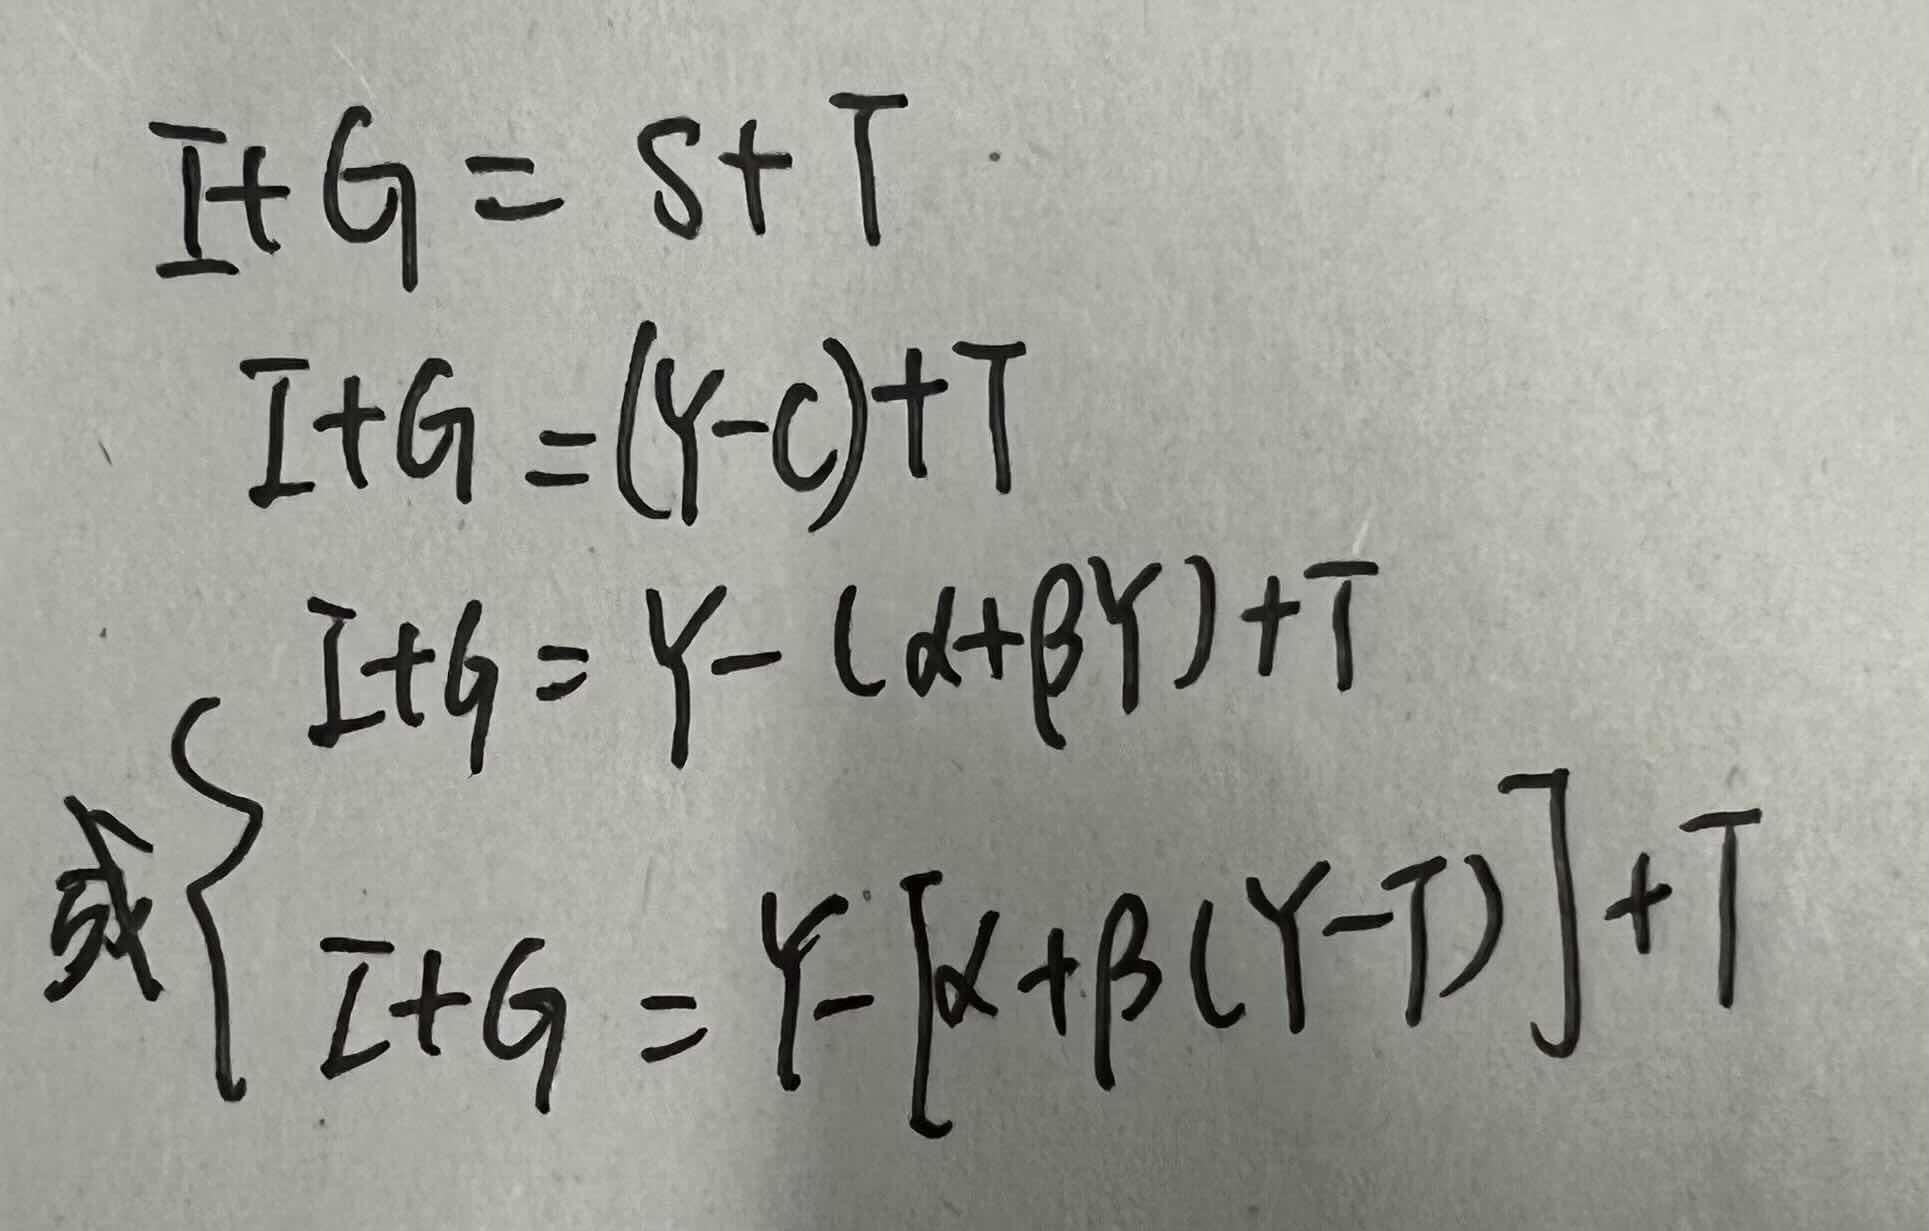 I+G = S+T
I+G = (Y-C)+T
I+G = Y-(α+βY)+T
或{
I+G = Y-[α+β(Y-T)]+T